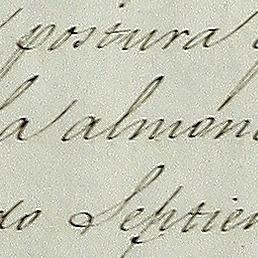 postura
la almon
do Septien